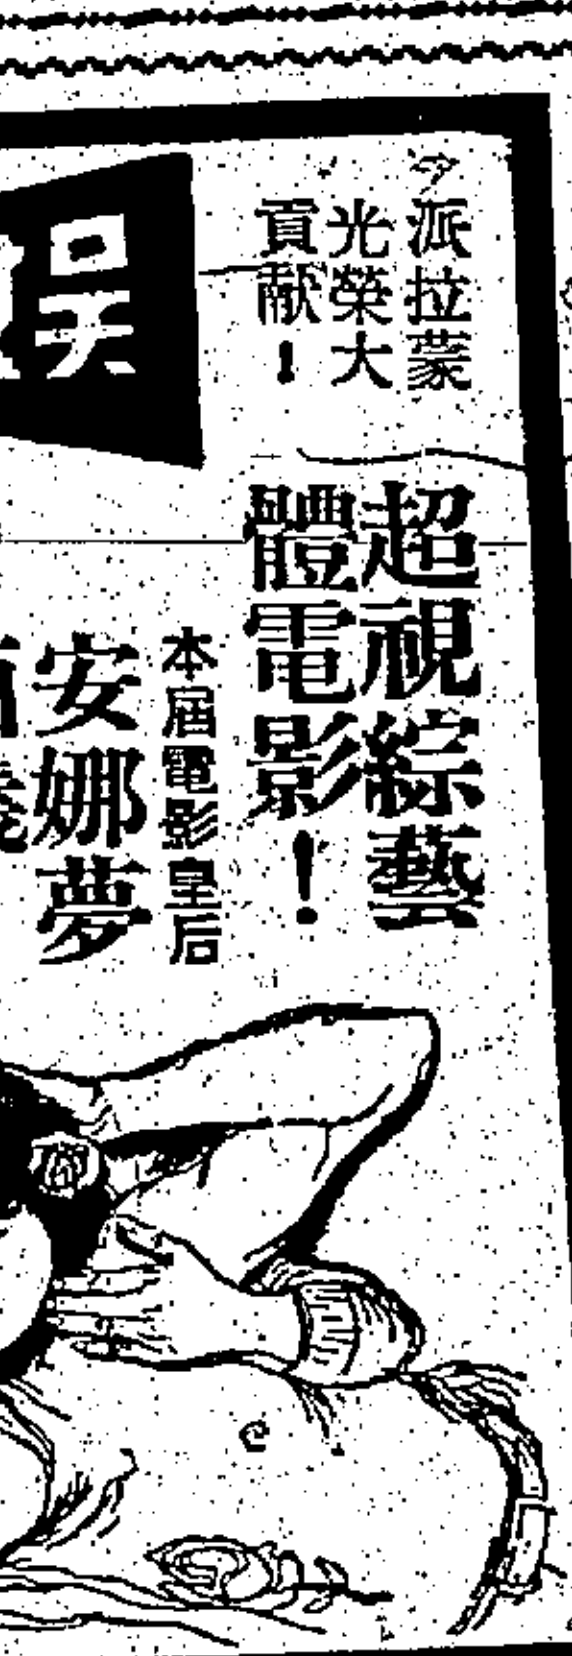 派拉蒙
光榮大
貢献！
超視綜藝
體電影！
本屆電影皇后
安娜夢